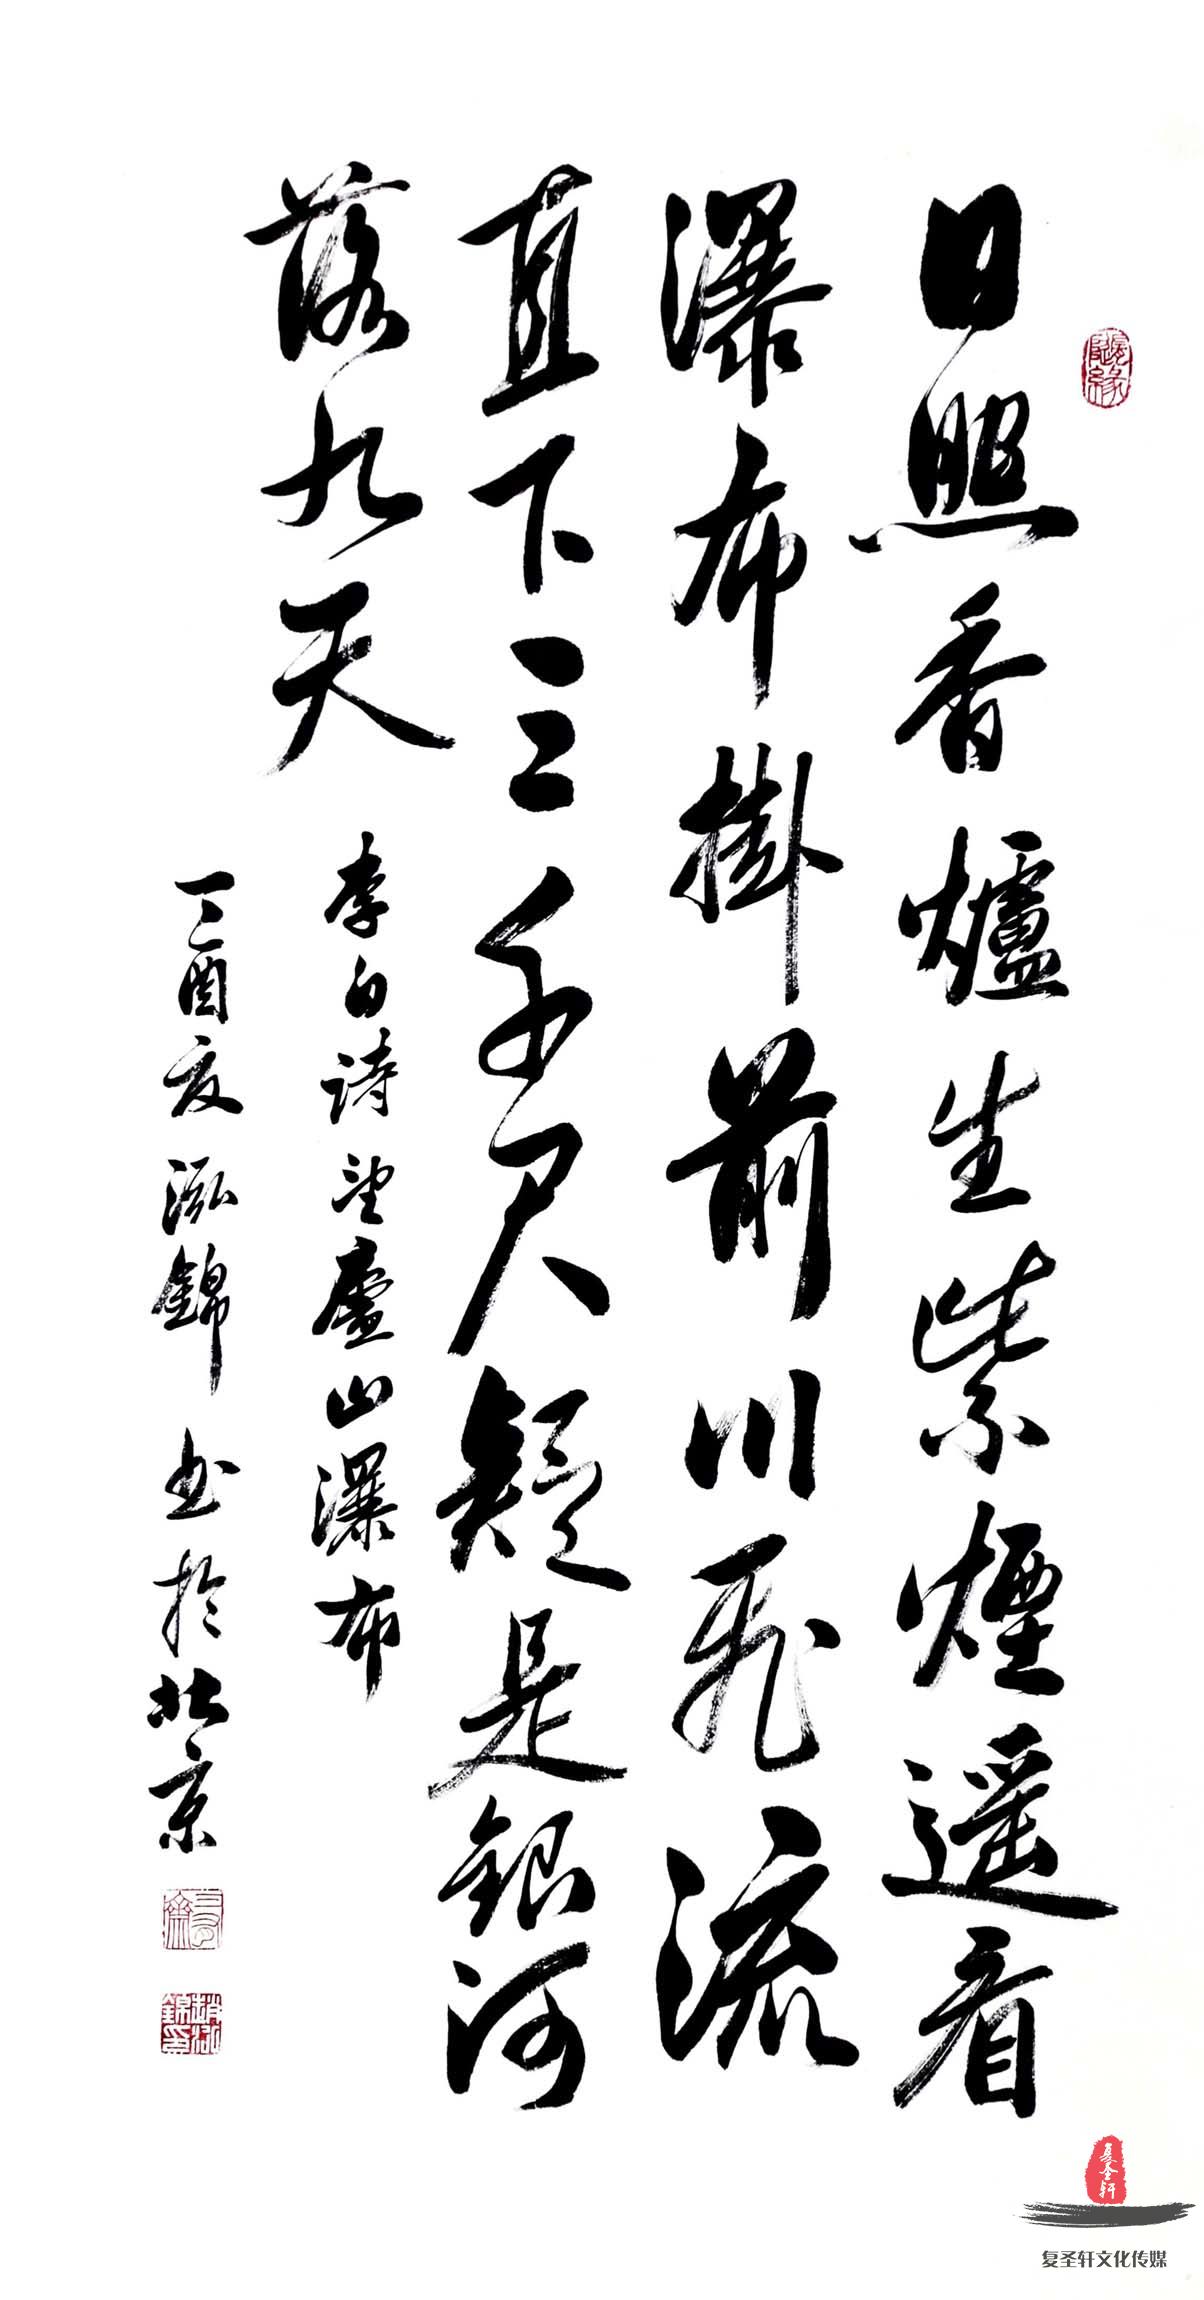 日照香爐生紫煙遥看
瀑布掛前川飛流
直下三千尺疑是銀河
落九天
李白诗望廬山瀑布
丁酉夏泓錦书於北京
隨緣
复圣轩
复圣轩文化传媒